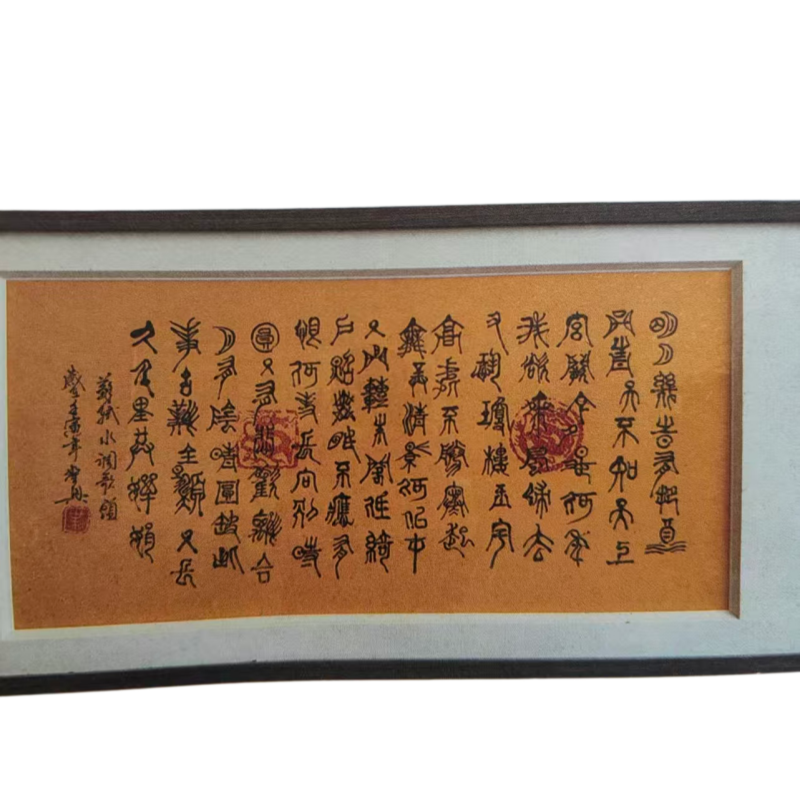 明月幾時有把酒
問青天不知天上
宮闕今夕是何年
我欲乘風歸去
又恐瓊樓玉宇
高處不勝寒起
舞弄清影何似在
人間轉朱閣低綺
戶照無眠不應有
恨何事長向別時
圓人有悲歡離合
月有陰晴圓缺此
事古難全願人長
久千里共嬋娟
蘇軾水調歌頭
歲壬寅年